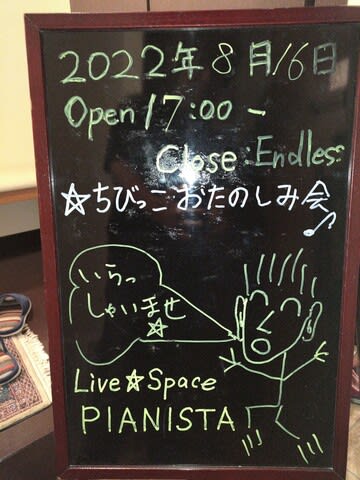 2022年8月16日
Open 17:00 -
Close:Endless
☆ちびっこおたのしみ会♪
いらっ
しゃいませ
☆
Live☆Space
PIANISTA